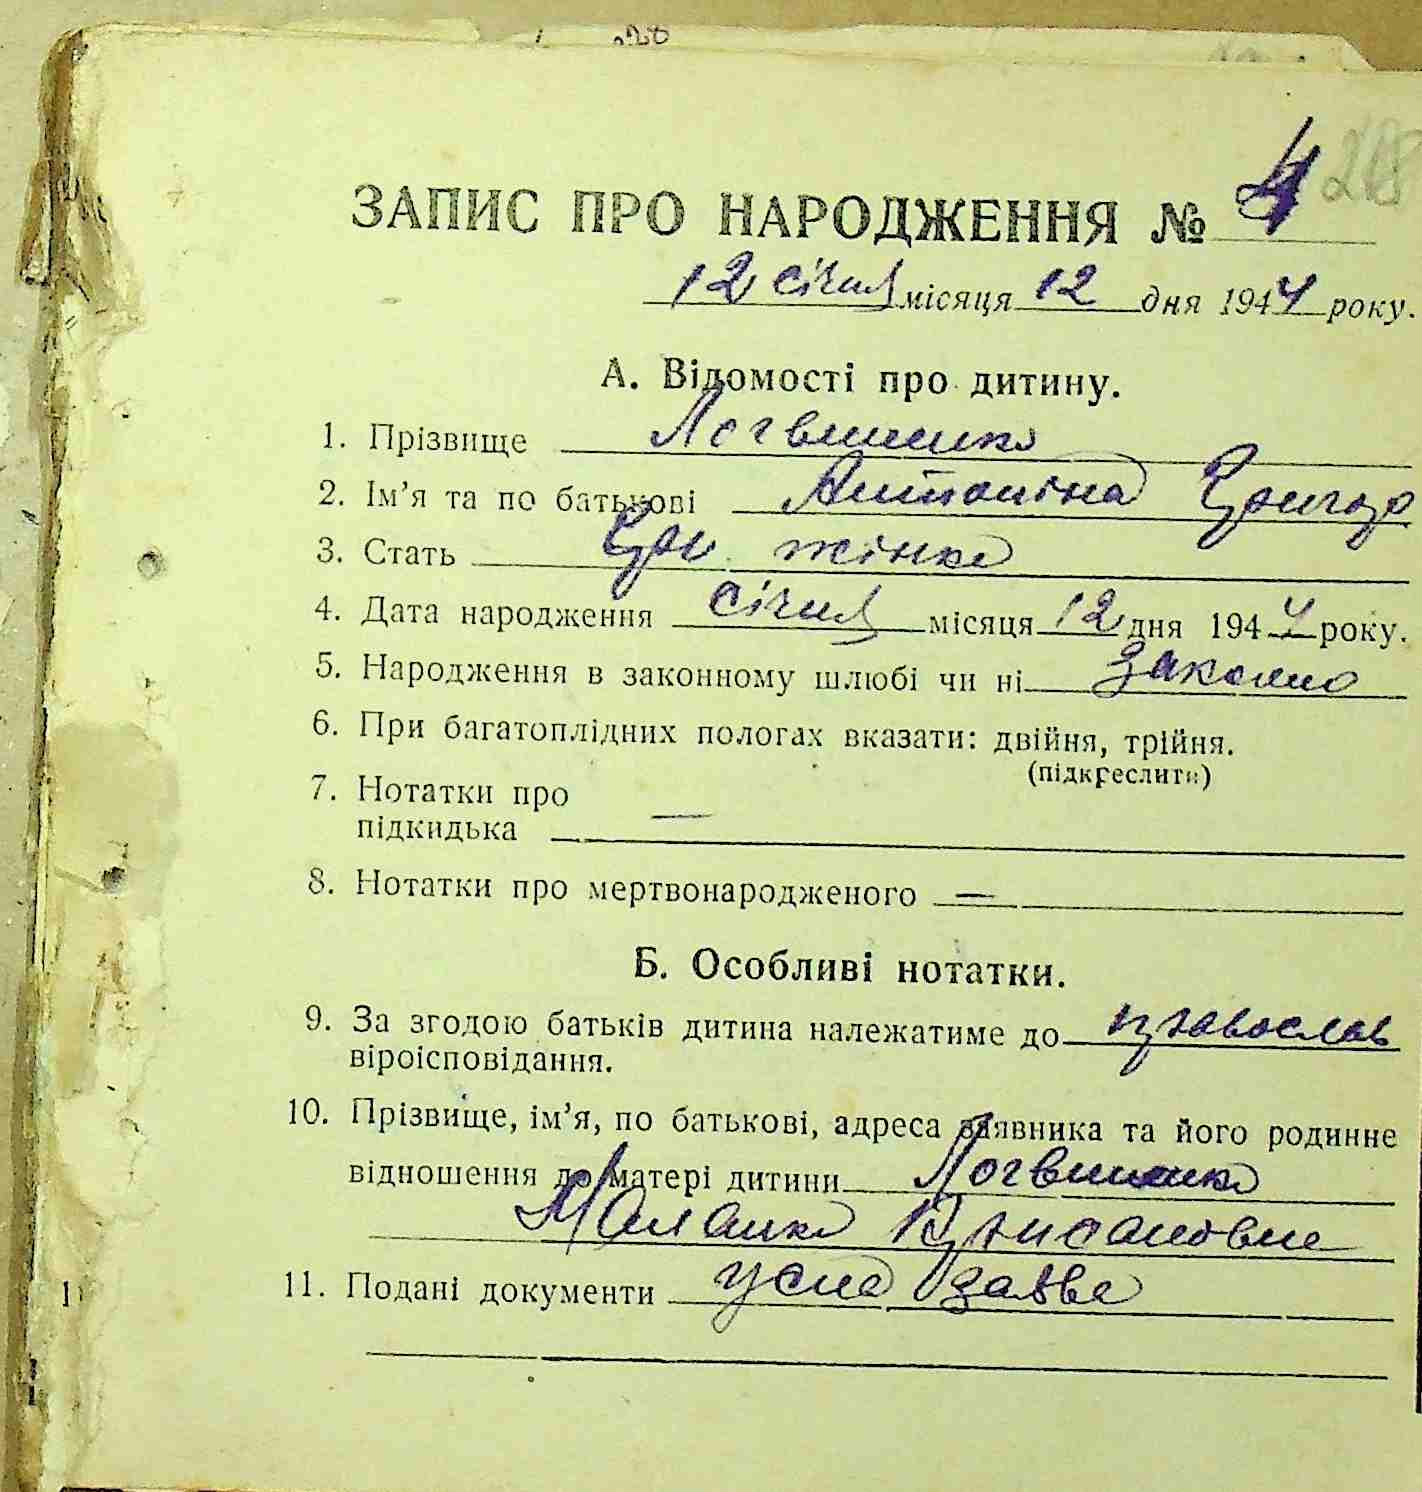 ЗАПИС ПРО НАРОДЖЕННЯ № 4
218
12 січня місяця 12 дня 1944 року.
А. Відомості про дитину.
1. Прізвище Логвиненко
2. Ім’я та по батькові Антоніна Григор
3. Стать жінка
4. Дата народження січня місяця 12 дня 1944 року.
5. Народження в законному шлюбі чи ні законно
6. При багатоплідних пологах вказати: двійня, трійня.
(підкреслити)
7. Нотатки про
підкидька —
8. Нотатки про мертвонародженого —
Б. Особливі нотатки.
9. За згодою батьків дитина належатиме до православ
віроісповідання.
10. Прізвище, ім’я, по батькові, адреса заявника та його родинне
відношення до матері дитини Логвиненко
Маланка
11. Подані документи усна заява